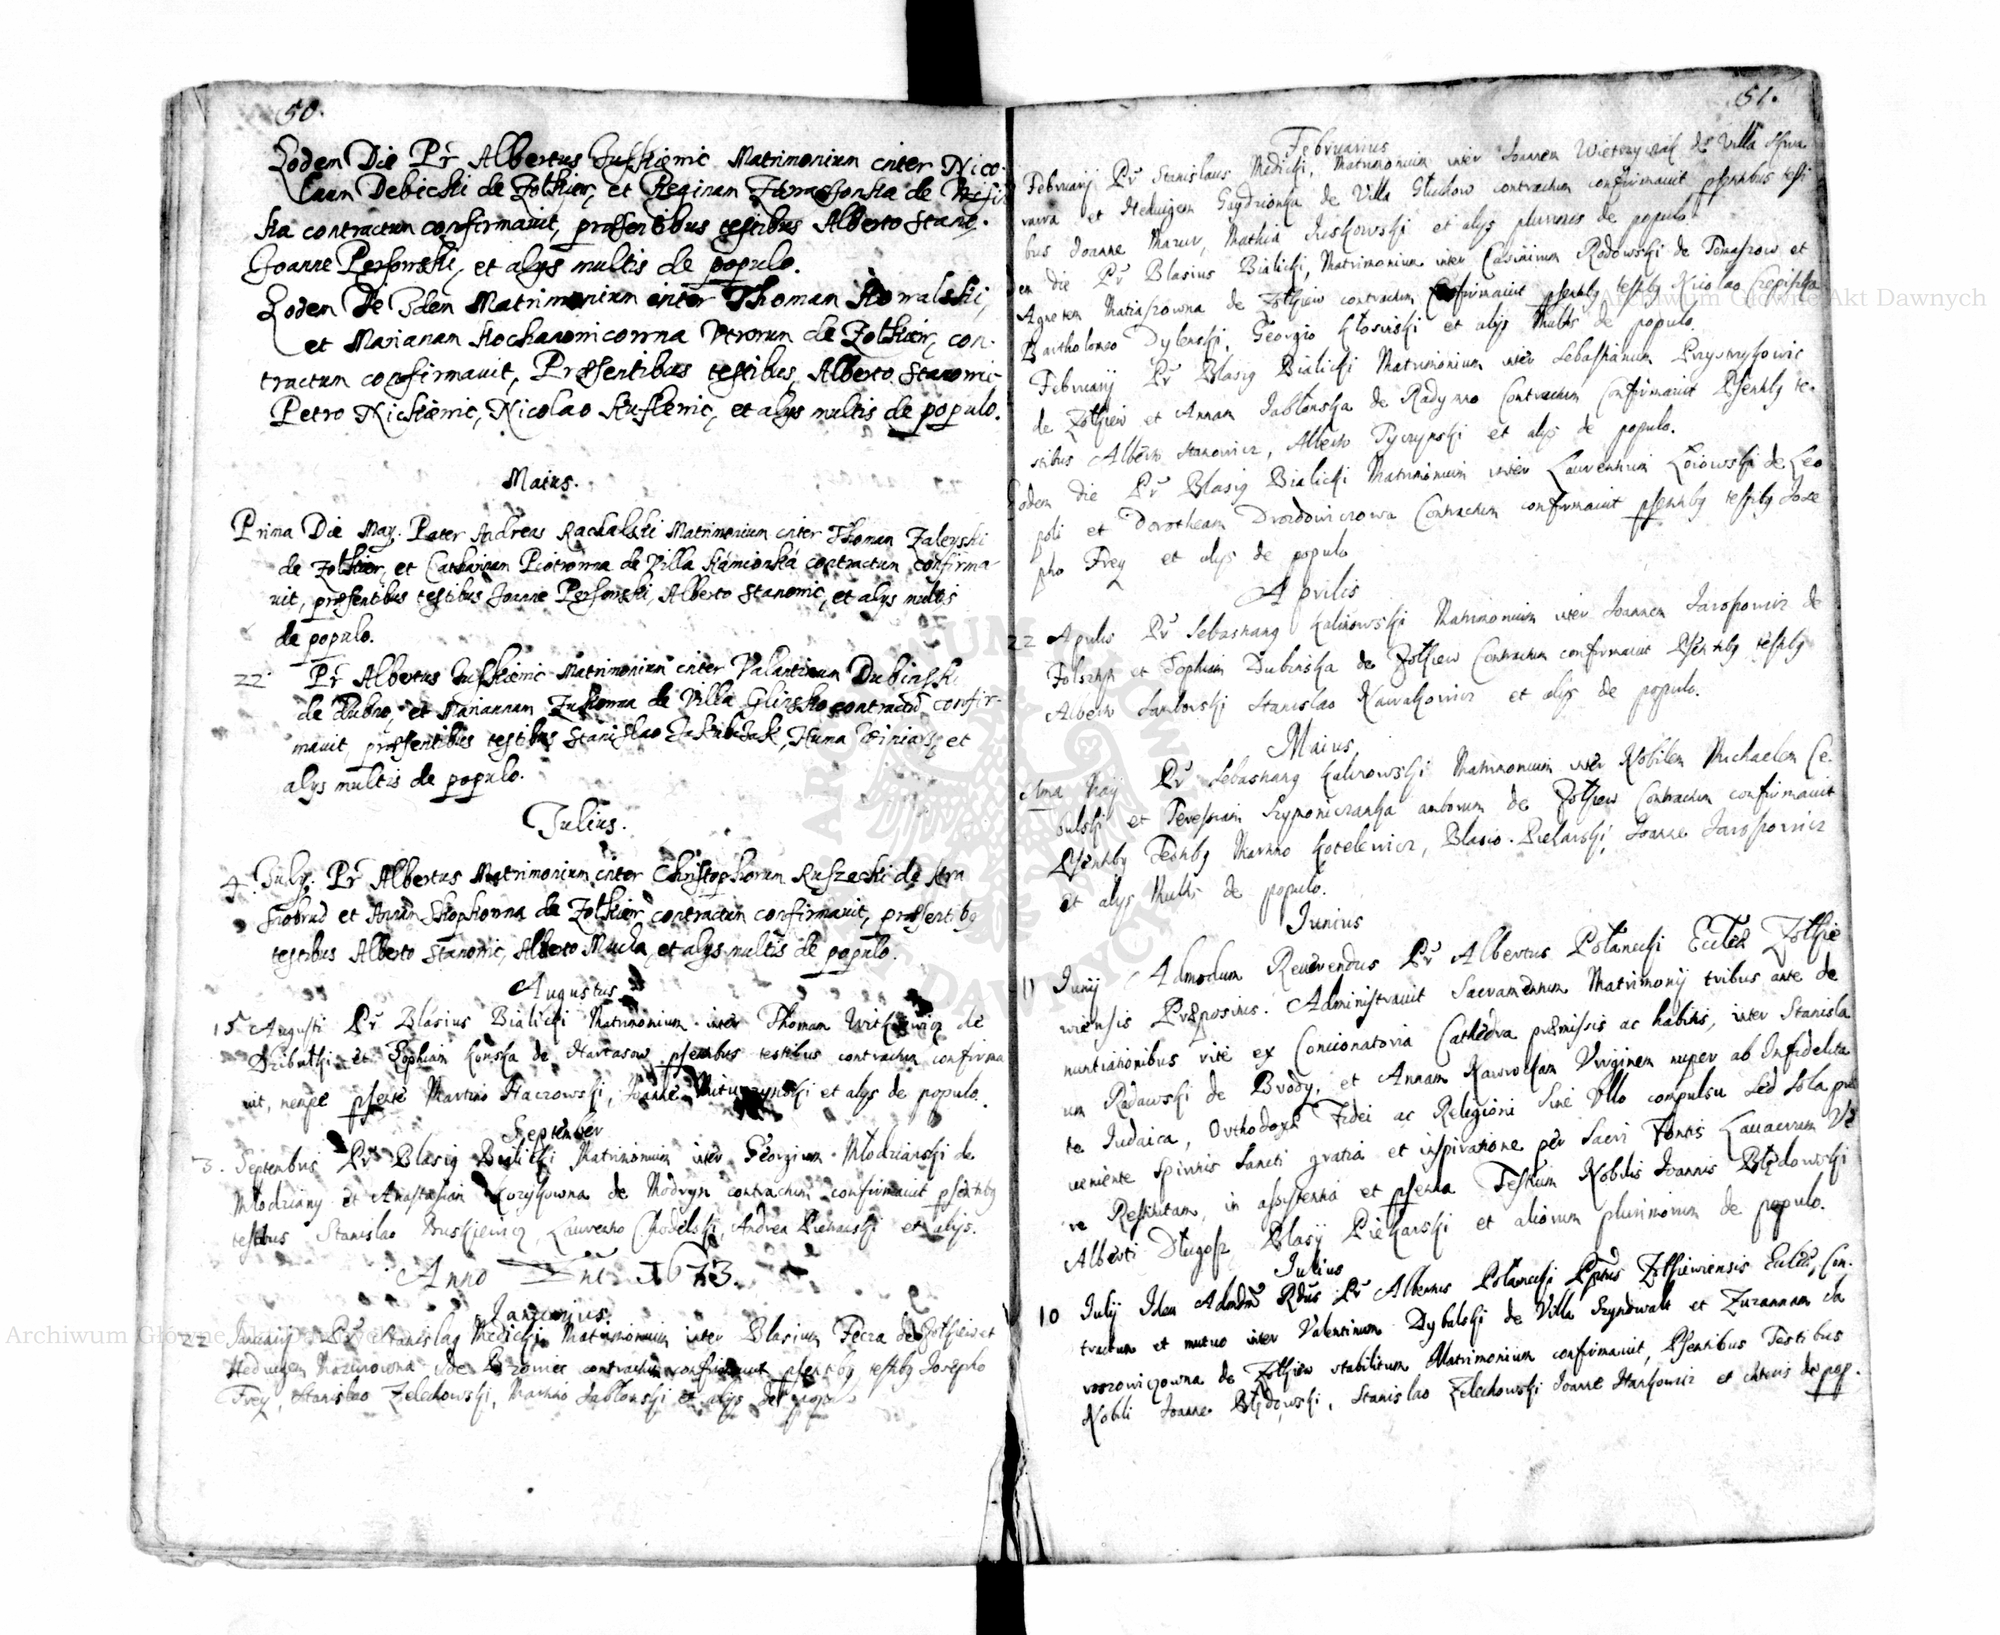 50.
Eodem Die Pr Albertus Juskiewic Matrimonium inter Nico-
laum Debicki de Zolkiew, et Reginam de
ska contractum confirmavit, præsentibus testibus Alberto Stano.
Joanne Persowski, et alys multis de populo.
Eodem Die Idem Matrimonium inter Thomam Kowalski,
et Mariannam Kochanowicowna Utrorum de Zolkiew, con-
tractum confirmavit, Præsentibus testibus, Alberto Stanowic
Petro Nickiewic, Nicolao Kuflewic, et alys multis de populo.
Maius.
Prima Die May. Pater Andreas Rachalski Matrimonium inter Thomam Zaleyski
de Zolkiew, et Catharinam Piotrowna de Villa Kamionka contractum confirma-
vit, præsentibus testibus Joanne Persowski, Alberto Stanowic, et alys multis
de populo.
22 Pr Albertus Juskiewic Matrimonium inter Valantinum Dubinski
de Dubno, et Mariannam Zukowna de Villa Glinsko contractū confir-
mavit præsentibus testibus Stanislao Jakubczak, Huma et
alys multis de populo.
Julius.
4 July. Pr Albertus Matrimonium inter Christophorum Ruszecki de
et Annam Skopkowna de Zolkiew contractum confirmavit, præsentibg
testibus Alberto Stanowic, Alberto Mucha, et alys multis de populo.
Augustus
15 Augusti Pr Blasius Bialicki Matrimonium inter Thomam de
et Sophiam Konska de Hartasow psentibus testibus contractum confirma
vit, nempe psente Martino Haczowski, Joanne et alys de populo.
September
3. Septembris Pr Blasig Bialicki Matrimonium inter Georgium Mlodzianski de
Mlodziany et Anastasiam Kozykowna de Modryn contractum confirmavit psentibg
testibus Stanislao Bruskiewicz, Laurentio Chodelski, Andrea Piekarski et alijs.
Anno Dni 1673.
Januarius.
22 Januarij Pr Stanislag Medicki Matrimonium inter Blasium Pecza de Zolkiew et
Hedvigem Mazurowna de contractum confirmavit psentibg testibg Josepho
Frey, Stanislao Zelechowski, Martino Jablonski et alijs de popul
51.
Februarius
Februarij Pr Stanislaus Medicki, Matrimonium inter Joannem de Villa
et Heduigem de Villa Gluchow contractum confirmavit psentibus testi
bus Joanne Mazur, Mathia Juskowski et alys plurimis de populo.
em die Pr Blasius Bialicki, Matrimonium inter Casimirum Rodowski de Tomaszow et
Agnetem Matiaszowna de Zolkiew contractum Confirmavit psentibg testibg Nicolao
Bartholomeo Dylenski, Georgio Klosinski et alijs Multis de populo.
Februarij Pr Blasig Bialicki Matrimonium inter Sebastianum
de Zolkiew et Annam Jablonska de Radymno Contractum Confirmavit Psentibg te-
stibus Alberto Stanowicz, Alberto Tyczynski et alijs de populo.
Eodem die Pr Blasig Bialicki Matrimonium inter Laurentium Loiowski de Leo
poli et Dorotheam Drozdowiczowa Contractum confirmavit psentibg testibg Jose
pho Frey et alijs de populo
Aprilis
22 Aprilis Pr Sebastiang Kalinowski Matrimonium inter Joannem Jaroszowicz de
et Sophiam Dubinska de Zolkiew Contractum confirmavit Psentibg testibg
Alberto Stanislao Kawakowicz et alijs de populo.
Maius,
May Pr Sebastiang Kalinowski Matrimonium inter Nobilem Michaelem Ce-
bulski et Teressiam Szymoniczanka amborum de Zolkiew Contractum confirmavit
Psentibg Testibg Martino Kotelewicz, Blasio Piekarski, Joanne Jaroszowicz
et alijs Multis de populo.
Junius
11 Junij Admodum Reuerendus Pr Albertus Polanecki Eccleæ Zolkie
wiensis Præpositus. Administravit Sacramentum Matrimonij tribus ante de
nuntiationibus rite ex Concionatoria Cathedra præmissis ac habitis, inter Stanisla
um Radawski de Brody, et Annam Virginem nuper ab Infidelita
te Judaica, Orthodoxæ Fidei ac Religioni Sine Ullo compulsu Sed Sola præ
ueniente Spiritus Sancti gratia et inspiratione per Sacri Fontis Lauacrum Ve
re Restitutam, in assistentia et psentia Testium Nobilis Joannis Blędowski
Alberti Dlugosz Blasij Piekarski et aliorum plurimorum de populo.
Julius
10 Julij Idem Admdm Rdus Pr Albertus Polanecki Pptus Zolkiewiensis Eccleæ, Con-
tractum et mutuo inter Valentinum Dybalski de Villa Szyndwalt et Zuzannam
de Zolkiew stabilitum Matrimonium confirmavit, Psentibus Testibus
Nobili Joanne Blędowski, Stanislao Zelechowski Joanne Stankowicz et cæteris de pop.
Archiwum Główne Akt Dawnych
Archiwum Główne Akt Dawnych
ARCHIWUM GŁÓWNE AKT DAWNYCH